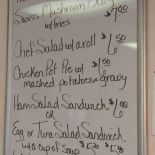 Swiss Mushroom Burger
w/fries $7.00
Chef Salad w/a roll $6.50
Chicken Pot Pie w/ $6.50
mashed potatoes & gravy
Ham Salad Sandwich $6
OR
Egg or Tuna Salad Sandwich
w/a cup of Soup $5.20